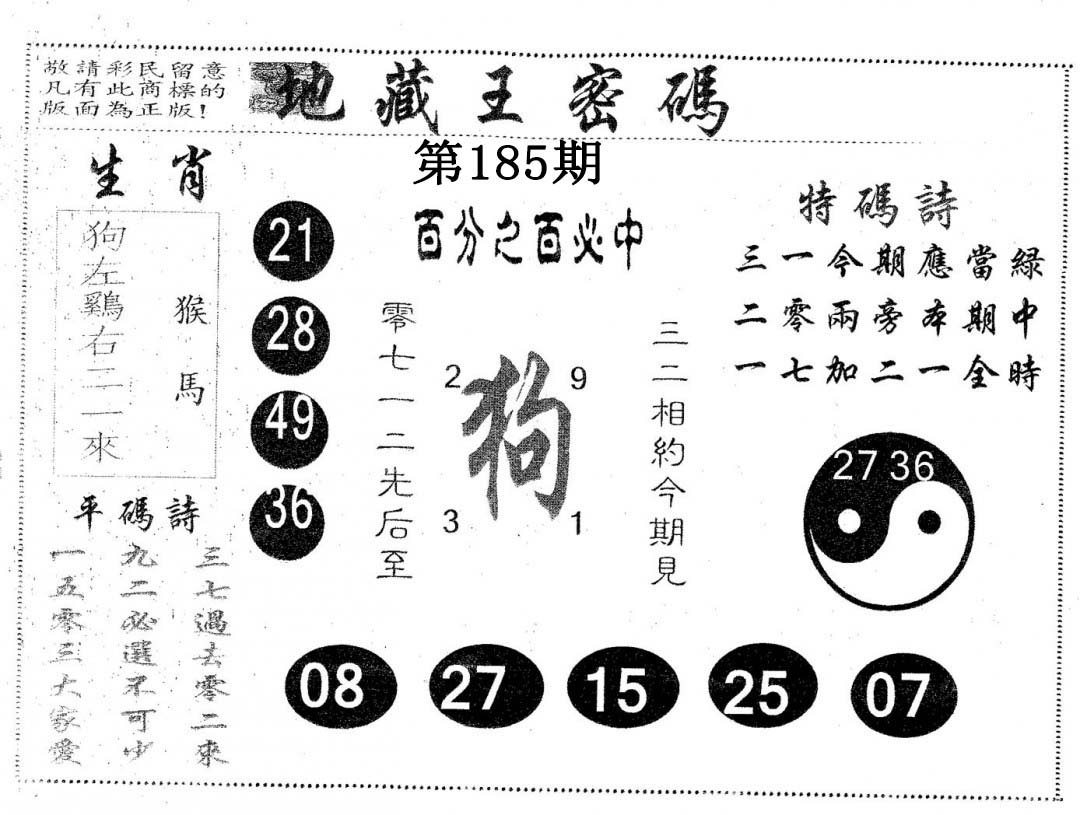 敬請彩民留意
凡有此商標的
版面為正版!
地藏王密碼
第185期
生肖
狗左鷄右二一來
猴馬
21
28
49
36
百分之百必中
零七一二先后至
2 9
狗
3 1
三二相約今期見
特碼詩
三一今期應當綠
二零兩旁本期中
一七加二一全時
27 36
平碼詩
三七過去零二來
九二必選不可少
一五零三大家愛
08 27 15 25 07